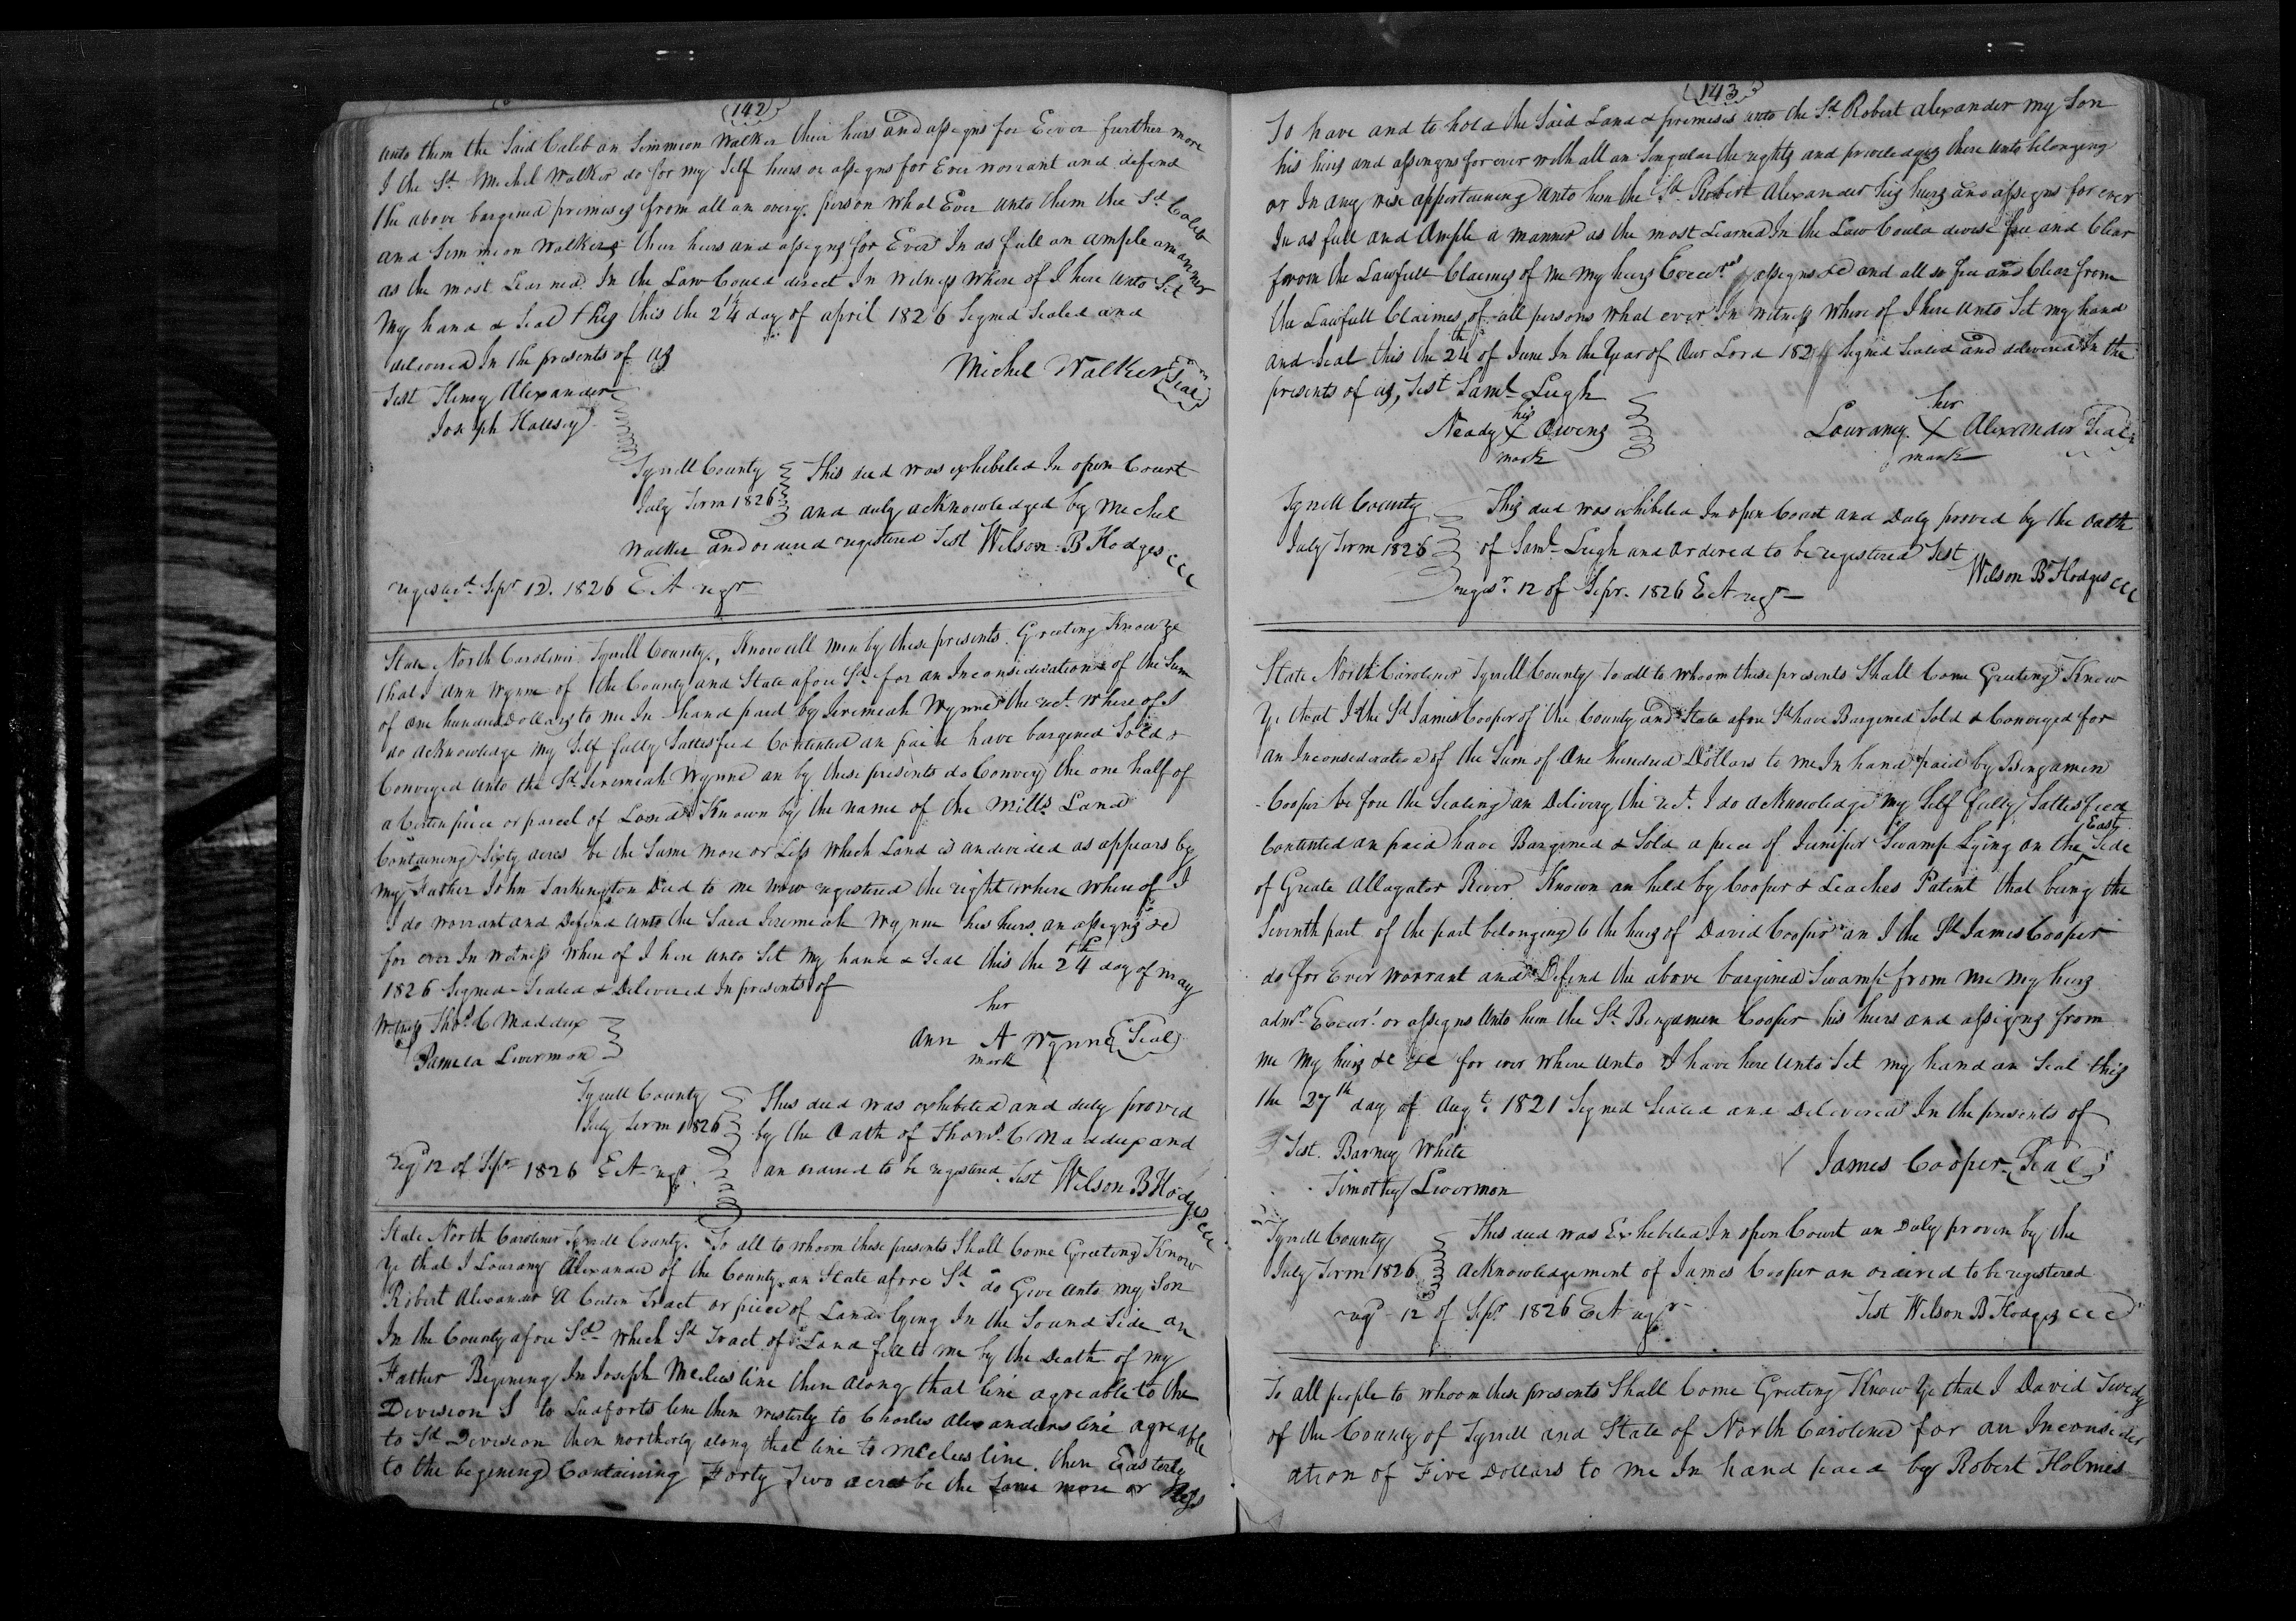 (142)
unto them the Said Caleb an Simmeon Walker their heirs and assegns for Ever further more
I the Sd. Michel Walker do for my Self heirs or assegns for Ever warrant and defend
the above bargened premises from all an every person what Ever unto them the Sd Caleb
and Simmeon Walkers their heirs and assegns for Ever In as full an ample a manner
as the most Learned In the Law Could direct In witness where of I here unto Set
my hand & Seal this this the 24th day of april 1826 Signed Sealed and
delivered In the presents of us
Michel Walker (Seal)
Test Henry Alexander
Joseph Halsey
Tyrrell County This deed was exhibeted In open Court
July Term 1826 and duly acknowledged by Michel
Walker and ordered registered Test Wilson B Hodges CCC
regested Sepr 12. 1826 E A regr
State North Carolina Tyrrell County, Know all men by these presents Greeting Know ye
that I Ann Wynne of the County and State afore Sd. for an Inconsideration of the Sum
of one hundred Dollars to me In hand paid by Jeremiah Wynne the rect. where of I
do acknowledge my Self fully Sattesfied Contented an paid have bargened Sold &
Conveyed unto the Sd. Jeremiah Wynne an by these presents do Convey the one half of
a Certen piece or parcel of Land Known by the name of the Mills Land
Containing Sixty acres be the Same more or Less which Land is undevided as appears by
my Father John Tarkington Deed to me now registered the right where where of I
I do warrant and Defend unto the Said Jeremiah Wynne his heirs an assegns &c
for ever In witness where of I here unto Set my hand & Seal this the 24th day of may
1826 Signed Sealed & Delivered In presents of
her
Witness Thos. C Maddux
Ann A Wynne (Seal)
mark
Pamela Liverman
Tyrrell County This deed was exhibeted and duly proved
July Term 1826 by the Oath of Thoms. C Maddux and
Regr 12 of Sepr 1826 E A regr. an ordered to be registered. Test Wilson B Hodges CCC
State North Caroliner Tyrrell County. To all to whoom these presents Shall Come Greeting Know
Ye that I Lourany Alexander of the County an State afore Sd do Give unto my Son
Robert Alexander A Certen Tract or piece of Land lying In the Sound Side an
In the County afore Sd which Sd Tract of Land fell to me by the Death of my
Father Begining In Joseph Mclees line then along that line agreable to the
Devision S to Ledforts line then westerly to Charles Alexanders line agreable
to Sd Devision then northerly along that line to Mclees line then Easterly
to the begining Containing Forty Two acres be the Same more or Less
(143)
To have and to hold the Said Land & premises unto the Sd Robert Alexander my Son
his heirs and assengns for ever with all an Singular the rights and priveledges there unto belonging
or In any wise appertaining unto him the Sd. Robert Alexander his heirs and assegns for ever
In as full and Ample a manner as the most Learned In the Law Could devise free and Clear
from the Lawfull Claimes of me my heirs Execrs assegns &c and all so free and Clear from
the Lawfull Claimes of all persons what ever In witness where of I here unto Set my hand
and Seal this the 24th of June In the Year of Our Lord 1824 Signed Sealed and delivered In the
presents of us, Test Saml. Leigh
his
Neady X Owens
mark
her
Lourany X Alexander Seal
mark
Tyrrell County This deed was exhibeted In open Court and Duly proved by the Oath
July Term 1826 of Saml. Leigh and ordered to be registered Test
Wilson B Hodges CCC
regesr. 12 of Sepr. 1826 E A regr
State North Caroliner Tyrrell County To all to whoom these presents Shall Come Greeting Know
Ye that I the Sd James Cooper of the County and State afore Sd have Bargened Sold & Conveyed for
an Inconsederation of the Sum of One hundred Dollars to me In hand paid by Bengamen
Cooper be fore the Sealing an Delivery the rect. I do acknowledge my Self fully Sattesfied
Contented an paid have Bargened & Sold a peice of Juniper Swamp Lying on the East Side
of Greate Allagator River Known an held by Cooper & Leaches Patent that being the
Seventh part of the part belonging to the heirs of David Cooper an I the Sd James Cooper
do for Ever warrant and Defend the above bargined Swamp from me my heirs
admr. Execur. or assegns unto him the Sd Bengamen Cooper his heirs and assigns from
me my heirs &c &c for ever where unto I have here unto Set my hand an Seal this
the 27th day of Augt. 1821 Signed Sealed and Delivered In the presents of
Test. Barney White
James Cooper (Seal)
Timothy Liverman
Tyrrell County This deed was Exhebeted In open Court an Duly proven by the
July Term 1826 acknowledgement of James Cooper an ordered to be registered
regr 12 of Sepr 1826 E A regr
Test Wilson B Hodges CCC
To all people to whoom these presents Shall Come Greeting Know Ye that I David Twedy
of the County of Tyrrell and State of North Caroliner for an Inconsider
ation of Five Dollars to me In hand paid by Robert Holmes